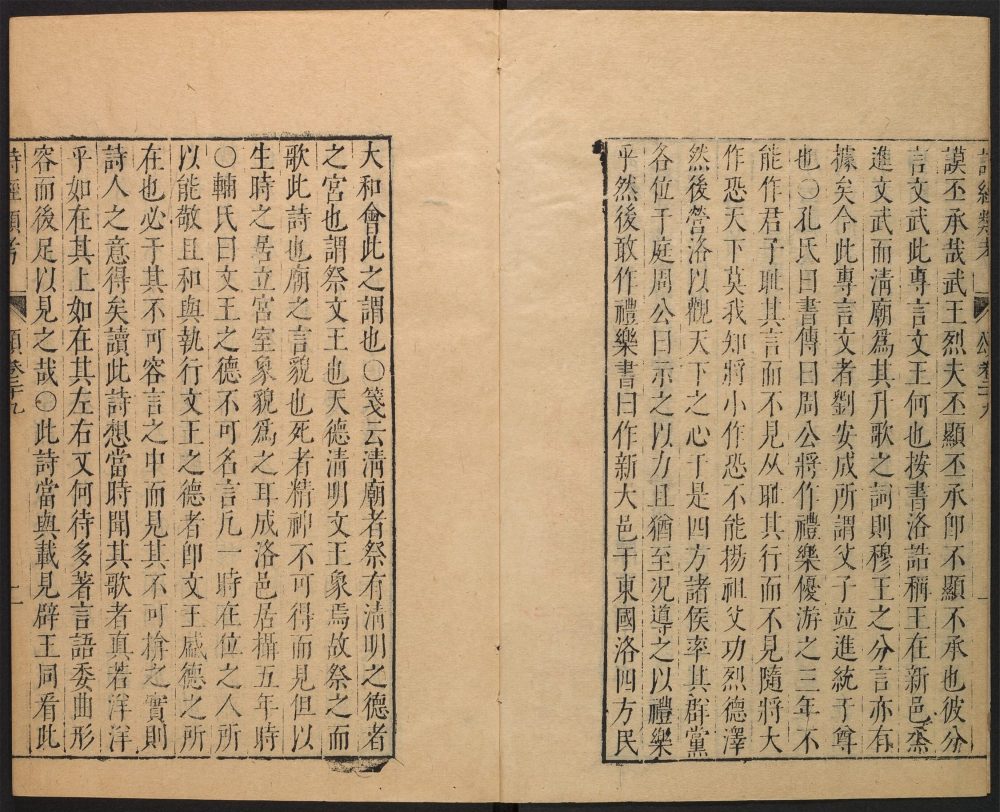 詩經類考 頌卷二十九 一
謨丕承哉武王烈夫丕顯丕承卽不顯不承也彼分
言文武此專言文王何也按書洛誥稱王在新邑烝
進文武而淸廟爲其升歌之詞則穆王之分言亦有
據矣今此專言文者劉安成所謂父子竝進統于尊
也○孔氏曰書傳曰周公將作禮樂優游之三年不
能作君子耻其言而不見從耻其行而不見隨將大
作恐天下莫我知將小作恐不能揚祖父功烈德澤
然後營洛以觀天下之心于是四方諸侯率其群黨
各位于庭周公曰示之以力且猶至况導之以禮樂
乎然後敢作禮樂書曰作新大邑于東國洛四方民
大和會此之謂也○箋云淸廟者祭有淸明之德者
之宮也謂祭文王也天德淸明文王象焉故祭之而
歌此詩也廟之言貌也死者精神不可得而見但以
生時之居立宮室象貌爲之耳成洛邑居攝五年時
○輔氏曰文王之德不可名言凡一時在位之人所
以能敬且和與執行文王之德者卽文王盛德之所
在也必于其不可容言之中而見其不可揜之實則
詩人之意得矣讀此詩想當時聞其歌者真若洋洋
乎如在其上如在其左右又何待多著言語委曲形
容而後足以見之哉○此詩當與載見辟王同看此
詩經類考 頌卷二十九 二